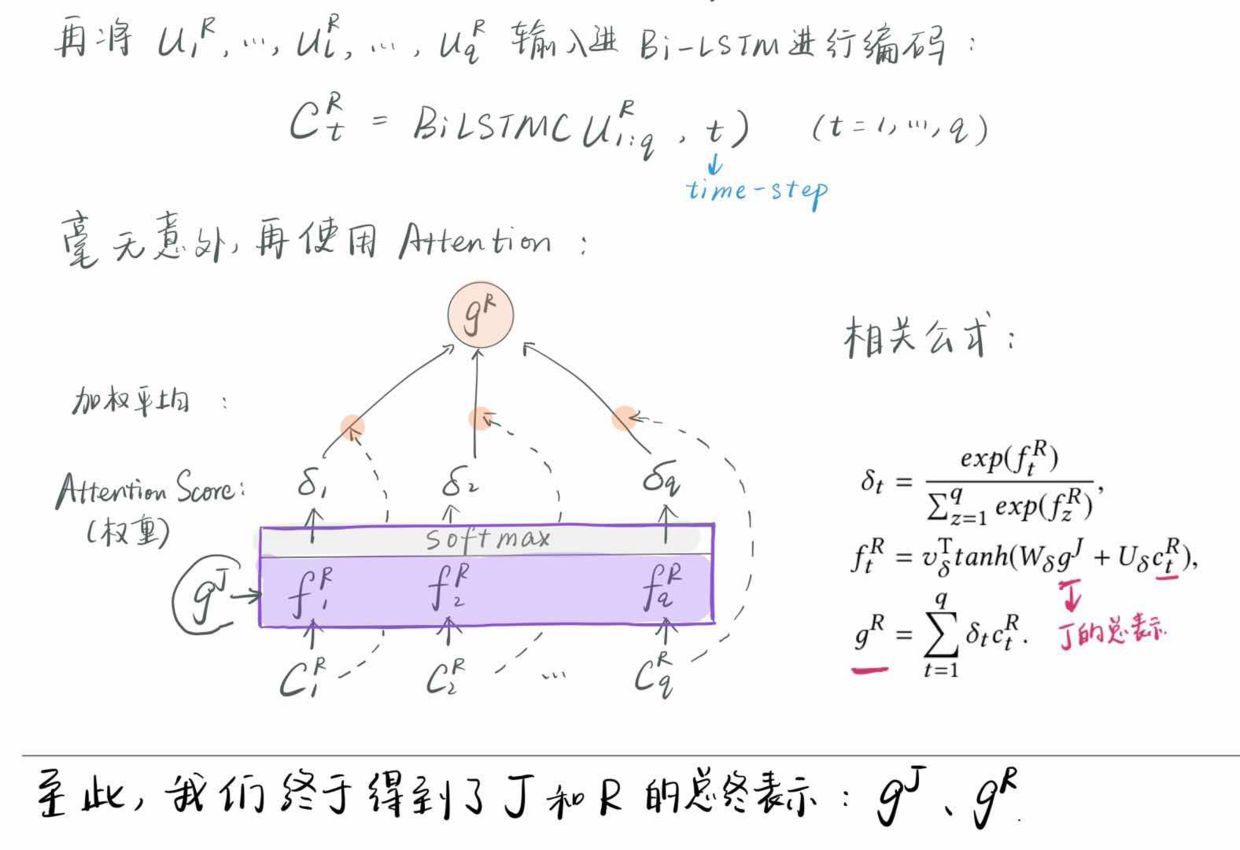 再将 u₁ᴿ, ..., uᵢᴿ, ..., u_qᴿ 输入进 Bi-LSTM进行编码：
C_t^R = BiLSTM( u_{1:q}^R , t ) (t = 1, ..., q)
↓
time-step
毫无意外, 再使用 Attention：
g^R
相关公式：
加权平均：
Attention Score: δ₁ δ₂ δ_q
(权重)
softmax
g^J → f_1^R f_2^R f_q^R
C_1^R C_2^R ... C_q^R
δ_t = exp(f_t^R) / ∑_{z=1}^{q} exp(f_z^R),
f_t^R = v_δ^T tanh(W_δ g^J + U_δ c_t^R),
g^R = ∑_{t=1}^{q} δ_t c_t^R.
↓
J的总表示
至此, 我们终于得到了 J 和 R 的总终表示：g^J、g^R.